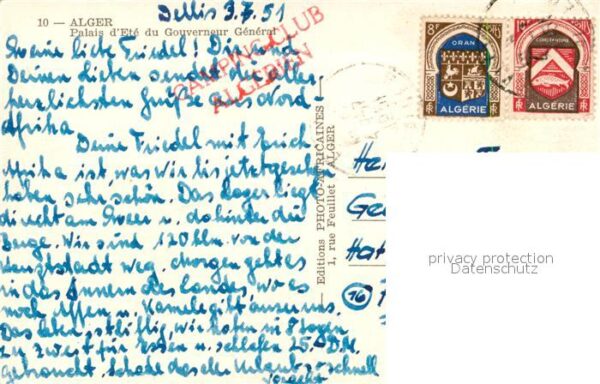 Dellis 3.7.51
10 — ALGER
Palais d'Eté du Gouverneur Général
Meine liebe Friedel! Dir und
Deinen Lieben sendet die aller-
herzlichsten Grüße aus Nord
Afrika
Deine Friedel mit Erich
Afrika ist, was wir bis jetzt gesehen
haben sehr schön. Das Lager liegt
direckt am Meer u. dahinter die
Berge. Wir sind 120 klm. von der
Hauptstadt weg. Morgen geht es
in das Innere des Landes, wo es
noch Affen u. Kamele gibt ausser uns.
Das aber ist billig, wir haben in 8 Tagen
zu zweit für essen u. schlafen 25.- DM.
gebraucht. Schade das der Urlaub so schnell
vergeht
CAMPING-CLUB
ALGERIEN
Editions PHOTO-AFRICAINES
1, rue Feuillet ALGER
8F
ORAN
ALGÉRIE
CONSTANTINE
ALGÉRIE
16
privacy protection
Datenschutz